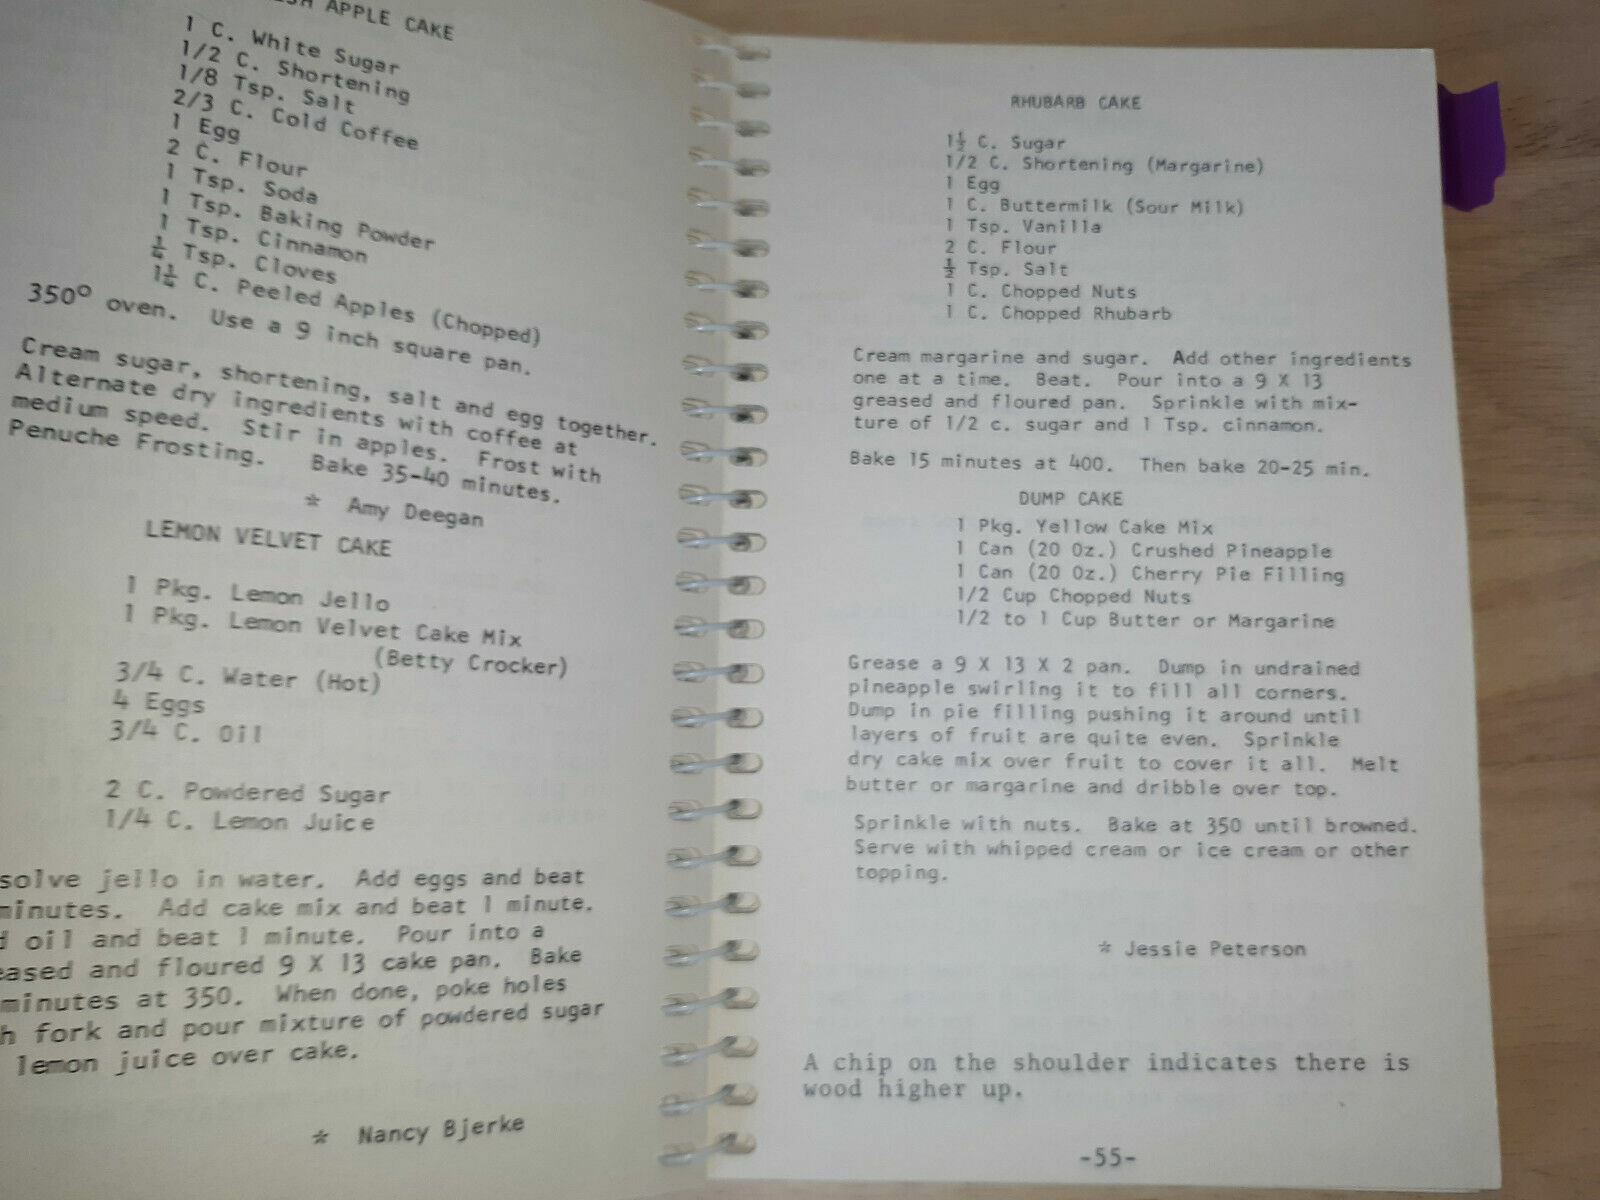 APPLE CAKE
1 C. White Sugar
1/2 C. Shortening
1/8 Tsp. Salt
2/3 C. Cold Coffee
1 Egg
2 C. Flour
1 Tsp. Soda
1 Tsp. Baking Powder
1 Tsp. Cinnamon
¼ Tsp. Cloves
1¼ C. Peeled Apples (Chopped)
350° oven. Use a 9 inch square pan.
Cream sugar, shortening, salt and egg together.
Alternate dry ingredients with coffee at
medium speed. Stir in apples. Frost with
Penuche Frosting. Bake 35-40 minutes.
* Amy Deegan
LEMON VELVET CAKE
1 Pkg. Lemon Jello
1 Pkg. Lemon Velvet Cake Mix
(Betty Crocker)
3/4 C. Water (Hot)
4 Eggs
3/4 C. Oil
2 C. Powdered Sugar
1/4 C. Lemon Juice
solve jello in water. Add eggs and beat
minutes. Add cake mix and beat 1 minute.
d oil and beat 1 minute. Pour into a
eased and floured 9 X 13 cake pan. Bake
minutes at 350. When done, poke holes
h fork and pour mixture of powdered sugar
lemon juice over cake.
* Nancy Bjerke
RHUBARB CAKE
1½ C. Sugar
1/2 C. Shortening (Margarine)
1 Egg
1 C. Buttermilk (Sour Milk)
1 Tsp. Vanilla
2 C. Flour
½ Tsp. Salt
1 C. Chopped Nuts
1 C. Chopped Rhubarb
Cream margarine and sugar. Add other ingredients
one at a time. Beat. Pour into a 9 X 13
greased and floured pan. Sprinkle with mix-
ture of 1/2 c. sugar and 1 Tsp. cinnamon.
Bake 15 minutes at 400. Then bake 20-25 min.
DUMP CAKE
1 Pkg. Yellow Cake Mix
1 Can (20 Oz.) Crushed Pineapple
1 Can (20 Oz.) Cherry Pie Filling
1/2 Cup Chopped Nuts
1/2 to 1 Cup Butter or Margarine
Grease a 9 X 13 X 2 pan. Dump in undrained
pineapple swirling it to fill all corners.
Dump in pie filling pushing it around until
layers of fruit are quite even. Sprinkle
dry cake mix over fruit to cover it all. Melt
butter or margarine and dribble over top.
Sprinkle with nuts. Bake at 350 until browned.
Serve with whipped cream or ice cream or other
topping.
* Jessie Peterson
A chip on the shoulder indicates there is
wood higher up.
-55-